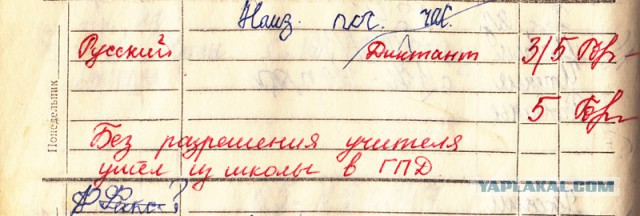 Наиз. поч. час.
Русский Диктант 3/5 Бр-
5 Бр-
Понедельник
Без разрешения учителя
ушёл из школы в ГПД.
YAPLAKAL.COM